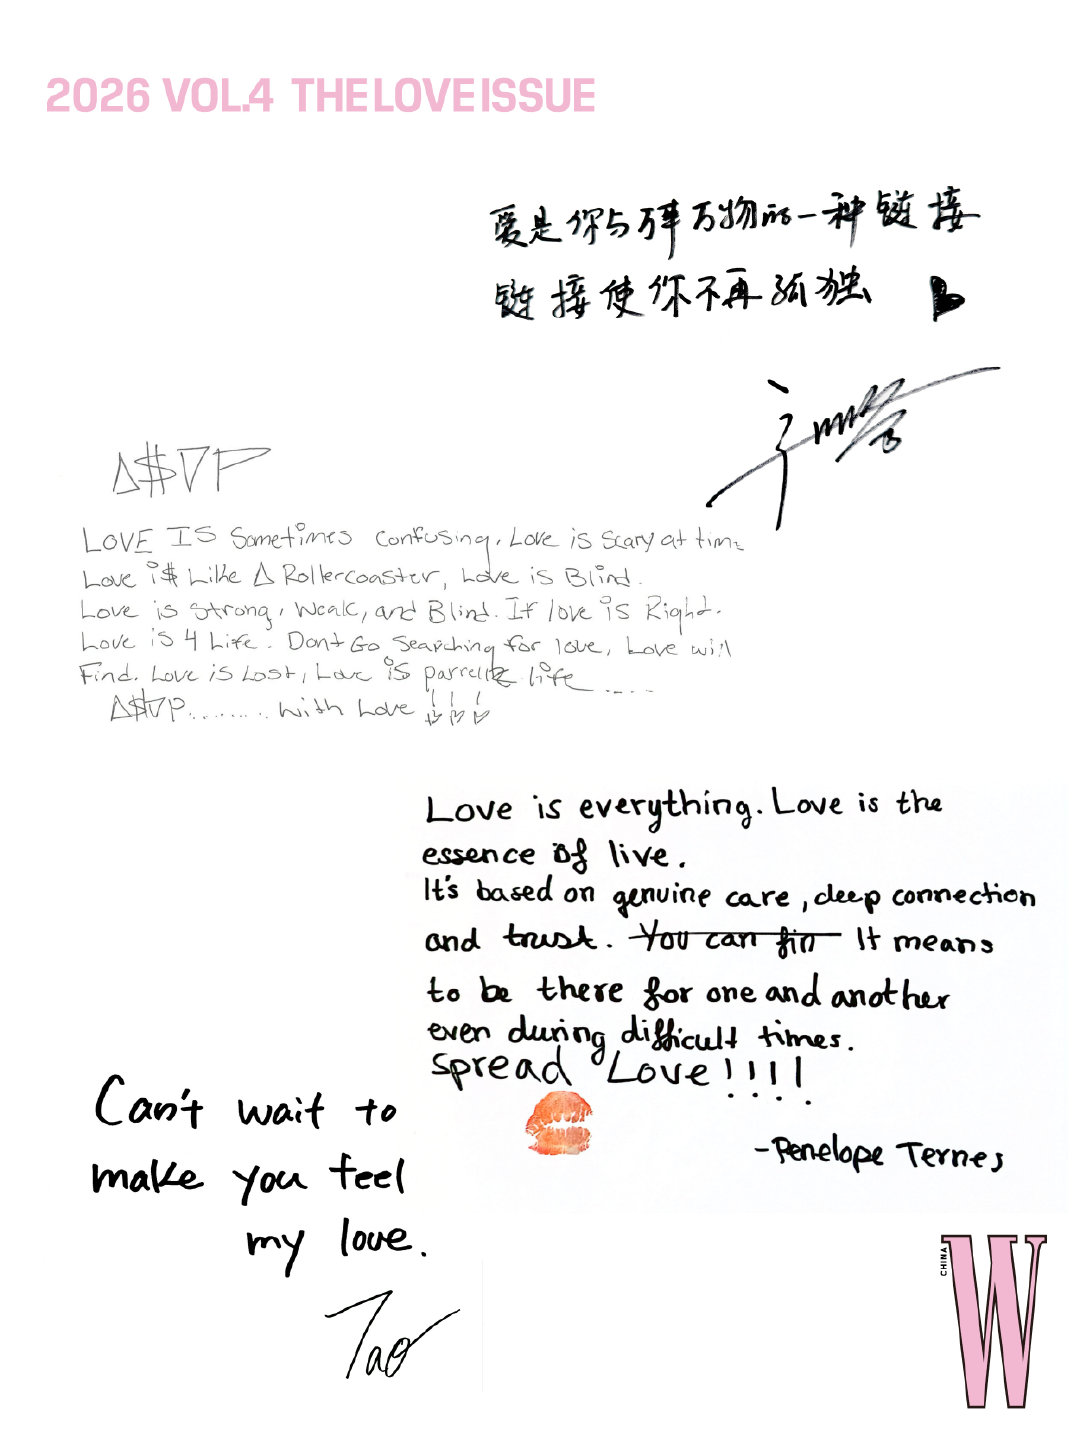 2026 VOL.4 THE LOVE ISSUE
爱是你与万事万物的一种链接
链接使你不再孤独
A$VP
LOVE IS Sometimes confusing, Love is scary at time
Love i$ Like A Rollercoaster, Love is Blind.
Love is strong, Weak, and Blind. If love is Right.
Love is 4 Life. Dont Go Searching for love, Love will
Find. Love is Lost, Love is life.....
A$VP........ With Love !!!
Love is everything. Love is the
essence of live.
It's based on genuine care, deep connection
and trust. You can fin It means
to be there for one and another
even during difficult times.
spread Love!!!!
-Penelope Ternes
Can't wait to
make you feel
my love.
Tao
CHINA
W